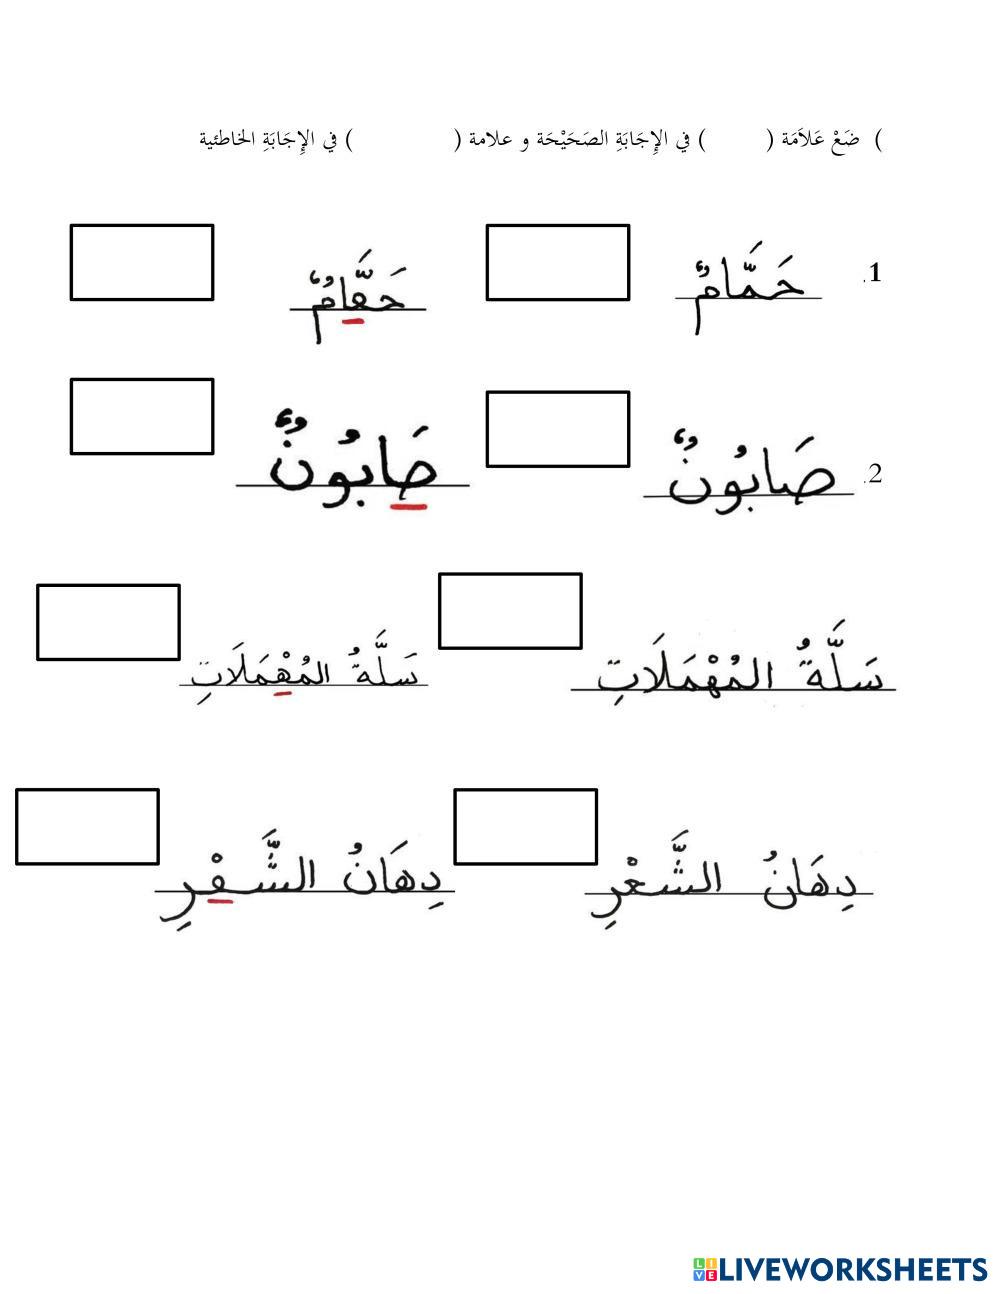 ) ضَعْ عَلاَمَة ( ) في الإِجَابَةِ الصَحَيْحَة و علامة ( ) في الإِجَابَةِ الخاطئية
.1 حَمَّامٌ حَمَّامٌ
.2 صَابُونٌ صَابُونٌ
سَلَّةُ المُهْمَلَاتِ سَلَّةُ المُهْمَلَاتِ
دِهَانُ الشَّعْرِ دِهَانُ الشَّعْرِ
LIVEWORKSHEETS